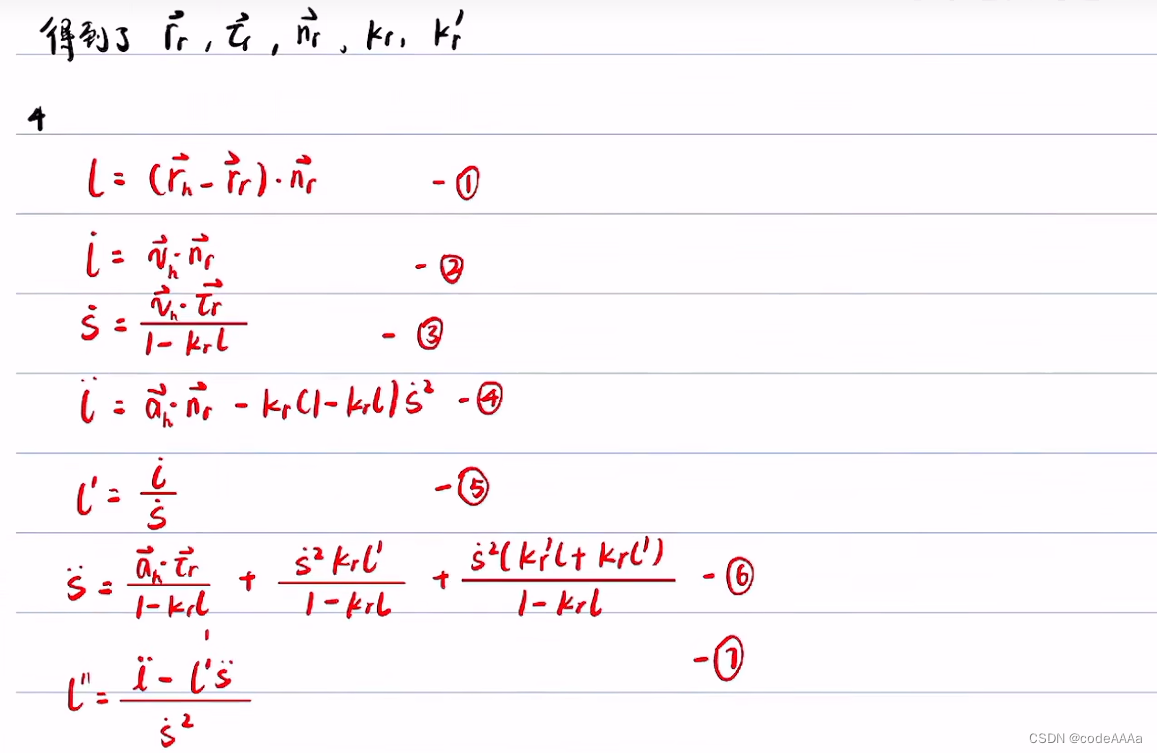 得到了 r⃗_r, τ⃗_r, n⃗_r, k_r, k_r'
4
l = (r⃗_h - r⃗_r)·n⃗_r -①
l̇ = v⃗_h·n⃗_r -②
ṡ = (v⃗_h·τ⃗_r)/(1 - k_r l) -③
l̈ = a⃗_h·n⃗_r - k_r(1 - k_r l)ṡ² -④
l' = l̇/ṡ -⑤
s̈ = (a⃗_h·τ⃗_r)/(1 - k_r l) + (ṡ² k_r l')/(1 - k_r l) + (ṡ²(k_r' l + k_r l'))/(1 - k_r l) -⑥
l'' = (l̈ - l's̈)/ṡ² -⑦
CSDN @codeAAAa